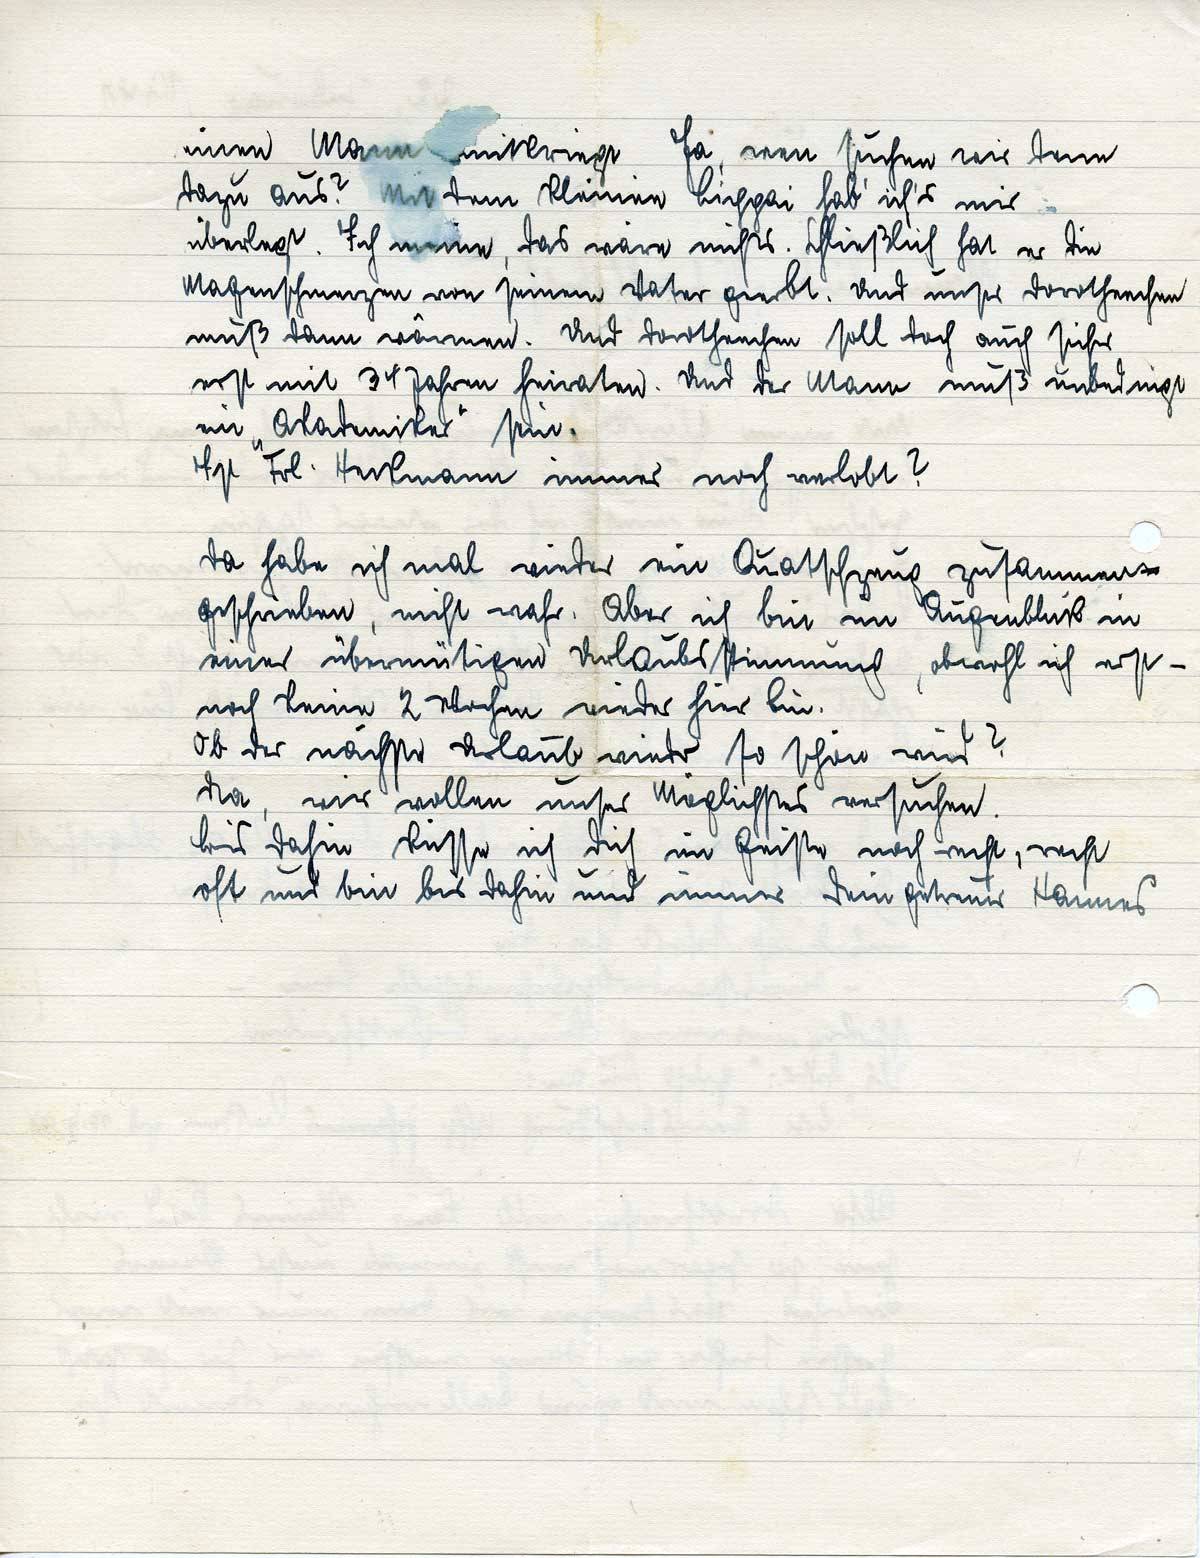 einen Mann mitkriegt Ja, wen suchen wir denn
dazu aus? Mit dem kleinen hab' ich's mir
überlegt. Ich meine, das wäre nichts. Schließlich hat er die
Magenschmerzen von seinem Vater geerbt. Und unser Dorotheechen
muß dann wärmen. Und Dorotheechen soll doch auch sicher
erst mit 34 Jahren heiraten. Und der Mann muß unbedingt
ein „Akademiker“ sein.
Ist Frl. Heckmann immer noch verlobt?
Da habe ich mal wieder ein Quatschzeug zusammen=
geschrieben, nicht wahr. Aber ich bin im Augenblick in
einer übermütigen Urlaubsstimmung, obwohl ich erst -
noch keine 2 Wochen wieder hier bin.
Ob der nächste Urlaub wieder so schön wird?
Na, wir wollen unser Möglichstes versuchen.
Bis dahin küsse ich Dich im Geiste noch recht, recht
oft und bin bis dahin und immer Dein getreuer Hannes